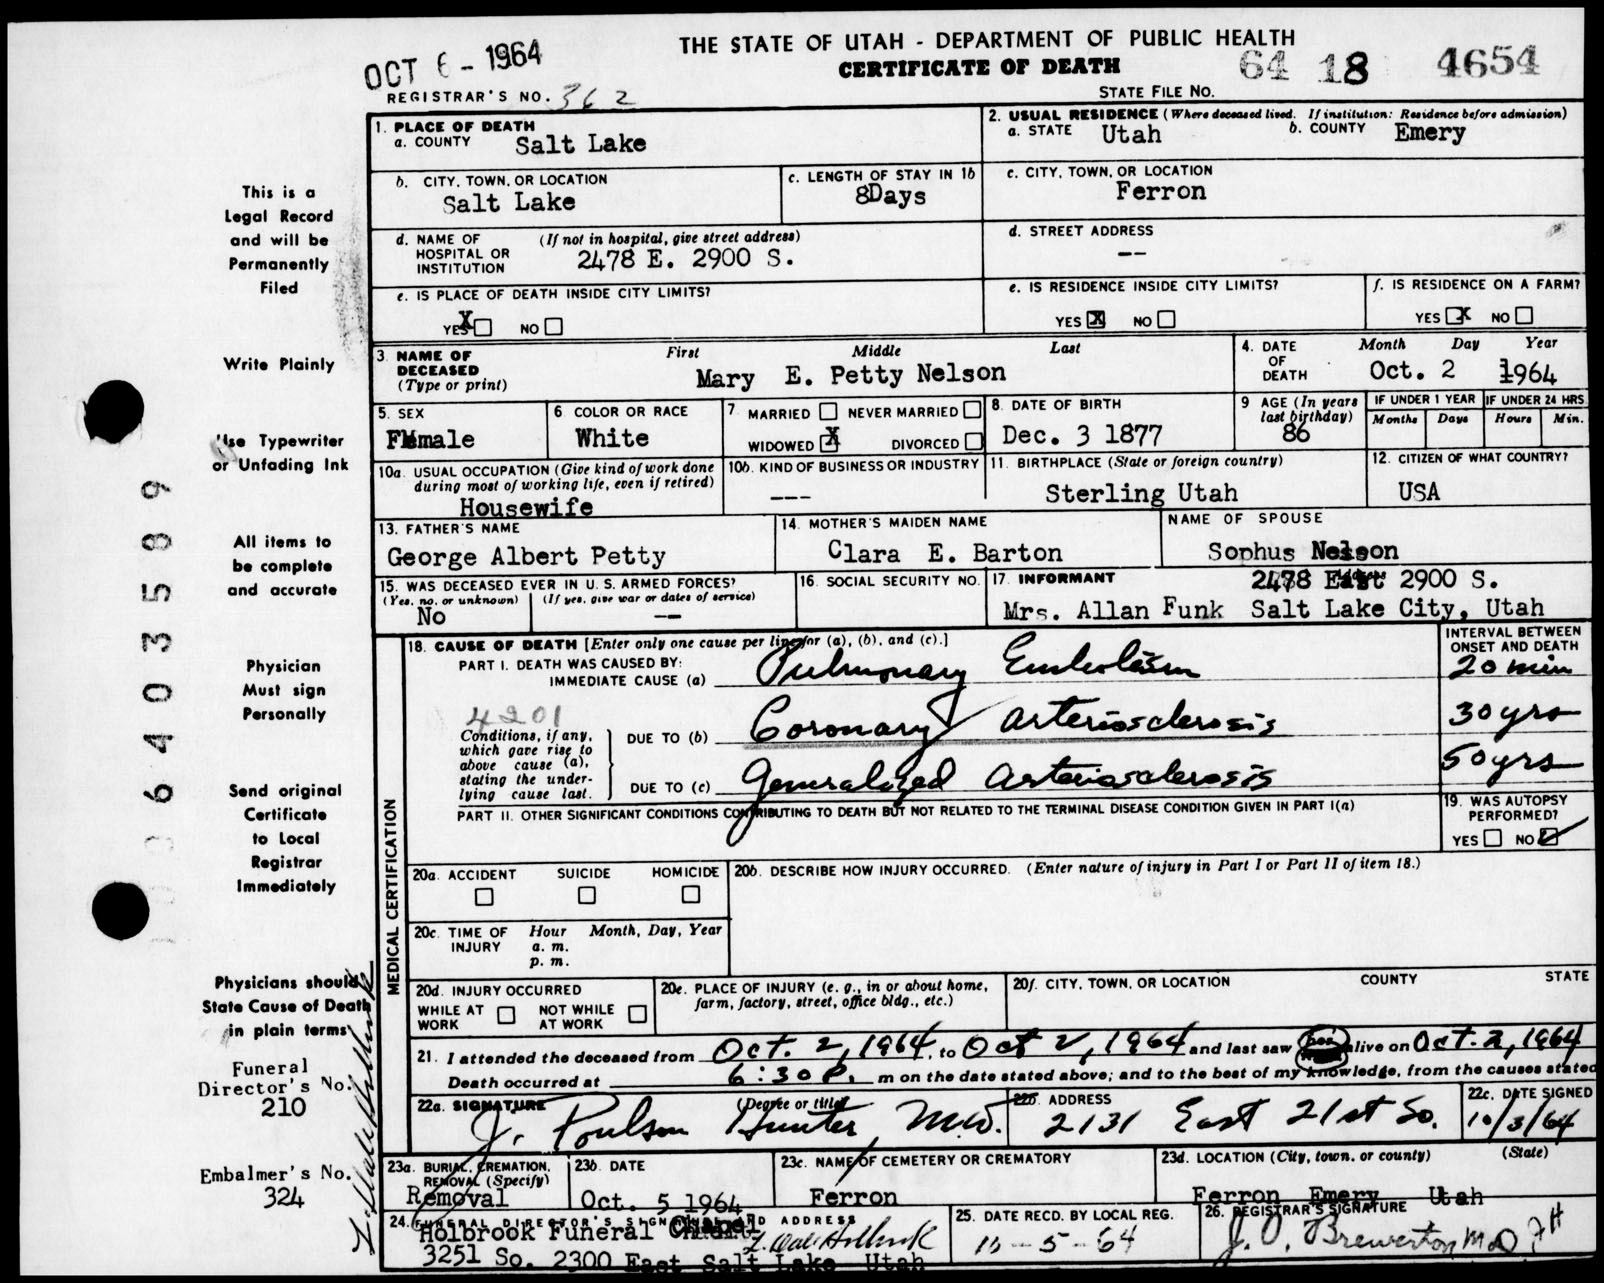 OCT 6 - 1964
THE STATE OF UTAH - DEPARTMENT OF PUBLIC HEALTH
CERTIFICATE OF DEATH
64 18 4654
REGISTRAR'S NO. 362
STATE FILE NO.
1. PLACE OF DEATH
a. COUNTY Salt Lake
2. USUAL RESIDENCE (Where deceased lived. If institution: Residence before admission)
a. STATE Utah b. COUNTY Emery
b. CITY, TOWN, OR LOCATION
Salt Lake
c. LENGTH OF STAY IN 1b
8Days
c. CITY, TOWN, OR LOCATION
Ferron
d. NAME OF HOSPITAL OR INSTITUTION (If not in hospital, give street address)
2478 E. 2900 S.
d. STREET ADDRESS
--
e. IS PLACE OF DEATH INSIDE CITY LIMITS?
YES X NO
e. IS RESIDENCE INSIDE CITY LIMITS?
YES X NO
f. IS RESIDENCE ON A FARM?
YES X NO
3. NAME OF DECEASED (Type or print)
First Middle Last
Mary E. Petty Nelson
4. DATE OF DEATH
Month Day Year
Oct. 2 1964
5. SEX
Female
6 COLOR OR RACE
White
7 MARRIED NEVER MARRIED
WIDOWED X DIVORCED
8. DATE OF BIRTH
Dec. 3 1877
9 AGE (In years last birthday)
86
IF UNDER 1 YEAR
Months Days
IF UNDER 24 HRS.
Hours Min.
10a. USUAL OCCUPATION (Give kind of work done during most of working life, even if retired)
Housewife
10b. KIND OF BUSINESS OR INDUSTRY
---
11. BIRTHPLACE (State or foreign country)
Sterling Utah
12. CITIZEN OF WHAT COUNTRY?
USA
13. FATHER'S NAME
George Albert Petty
14. MOTHER'S MAIDEN NAME
Clara E. Barton
NAME OF SPOUSE
Sophus Nelson
15. WAS DECEASED EVER IN U. S. ARMED FORCES?
(Yes, no, or unknown) (If yes, give war or dates of service)
No --
16. SOCIAL SECURITY NO.
17. INFORMANT Address
2478 East 2900 S.
Mrs. Allan Funk Salt Lake City, Utah
18. CAUSE OF DEATH [Enter only one cause per line for (a), (b), and (c).]
INTERVAL BETWEEN ONSET AND DEATH
PART I. DEATH WAS CAUSED BY:
IMMEDIATE CAUSE (a) Pulmonary Embolism 20 min
4201
Conditions, if any, which gave rise to above cause (a), stating the underlying cause last.
DUE TO (b) Coronary arteriosclerosis 30 yrs
DUE TO (c) Generalized arteriosclerosis 50 yrs
PART II. OTHER SIGNIFICANT CONDITIONS CONTRIBUTING TO DEATH BUT NOT RELATED TO THE TERMINAL DISEASE CONDITION GIVEN IN PART I(a)
19. WAS AUTOPSY PERFORMED?
YES NO
MEDICAL CERTIFICATION
20a. ACCIDENT SUICIDE HOMICIDE
20b. DESCRIBE HOW INJURY OCCURRED. (Enter nature of injury in Part I or Part II of item 18.)
20c. TIME OF INJURY
Hour Month, Day, Year
a. m.
p. m.
20d. INJURY OCCURRED
WHILE AT WORK NOT WHILE AT WORK
20e. PLACE OF INJURY (e. g., in or about home, farm, factory, street, office bldg., etc.)
20f. CITY, TOWN, OR LOCATION COUNTY STATE
21. I attended the deceased from Oct. 2, 1964, to Oct 2, 1964 and last saw her alive on Oct. 2, 1964
Death occurred at 6:30 P. m on the date stated above; and to the best of my knowledge, from the causes stated
22a. SIGNATURE (Degree or title)
J. Poulson Hunter, M.D.
22b. ADDRESS
2131 East 21st So.
22c. DATE SIGNED
10/3/64
23a. BURIAL, CREMATION, REMOVAL (Specify)
Removal
23b. DATE
Oct. 5 1964
23c. NAME OF CEMETERY OR CREMATORY
Ferron
23d. LOCATION (City, town, or county) (State)
Ferron Emery Utah
24. FUNERAL DIRECTOR'S SIGNATURE AND ADDRESS
Holbrook Funeral Chapel
3251 So. 2300 East Salt Lake Utah
25. DATE RECD. BY LOCAL REG.
10-5-64
26. REGISTRAR'S SIGNATURE
J. O. Brewerton MD
This is a
Legal Record
and will be
Permanently
Filed
Write Plainly
Use Typewriter
or Unfading Ink
All items to
be complete
and accurate
Physician
Must sign
Personally
Send original
Certificate
to Local
Registrar
Immediately
Physicians should
State Cause of Death
in plain terms
Funeral
Director's No.
210
Embalmer's No.
324
6403589